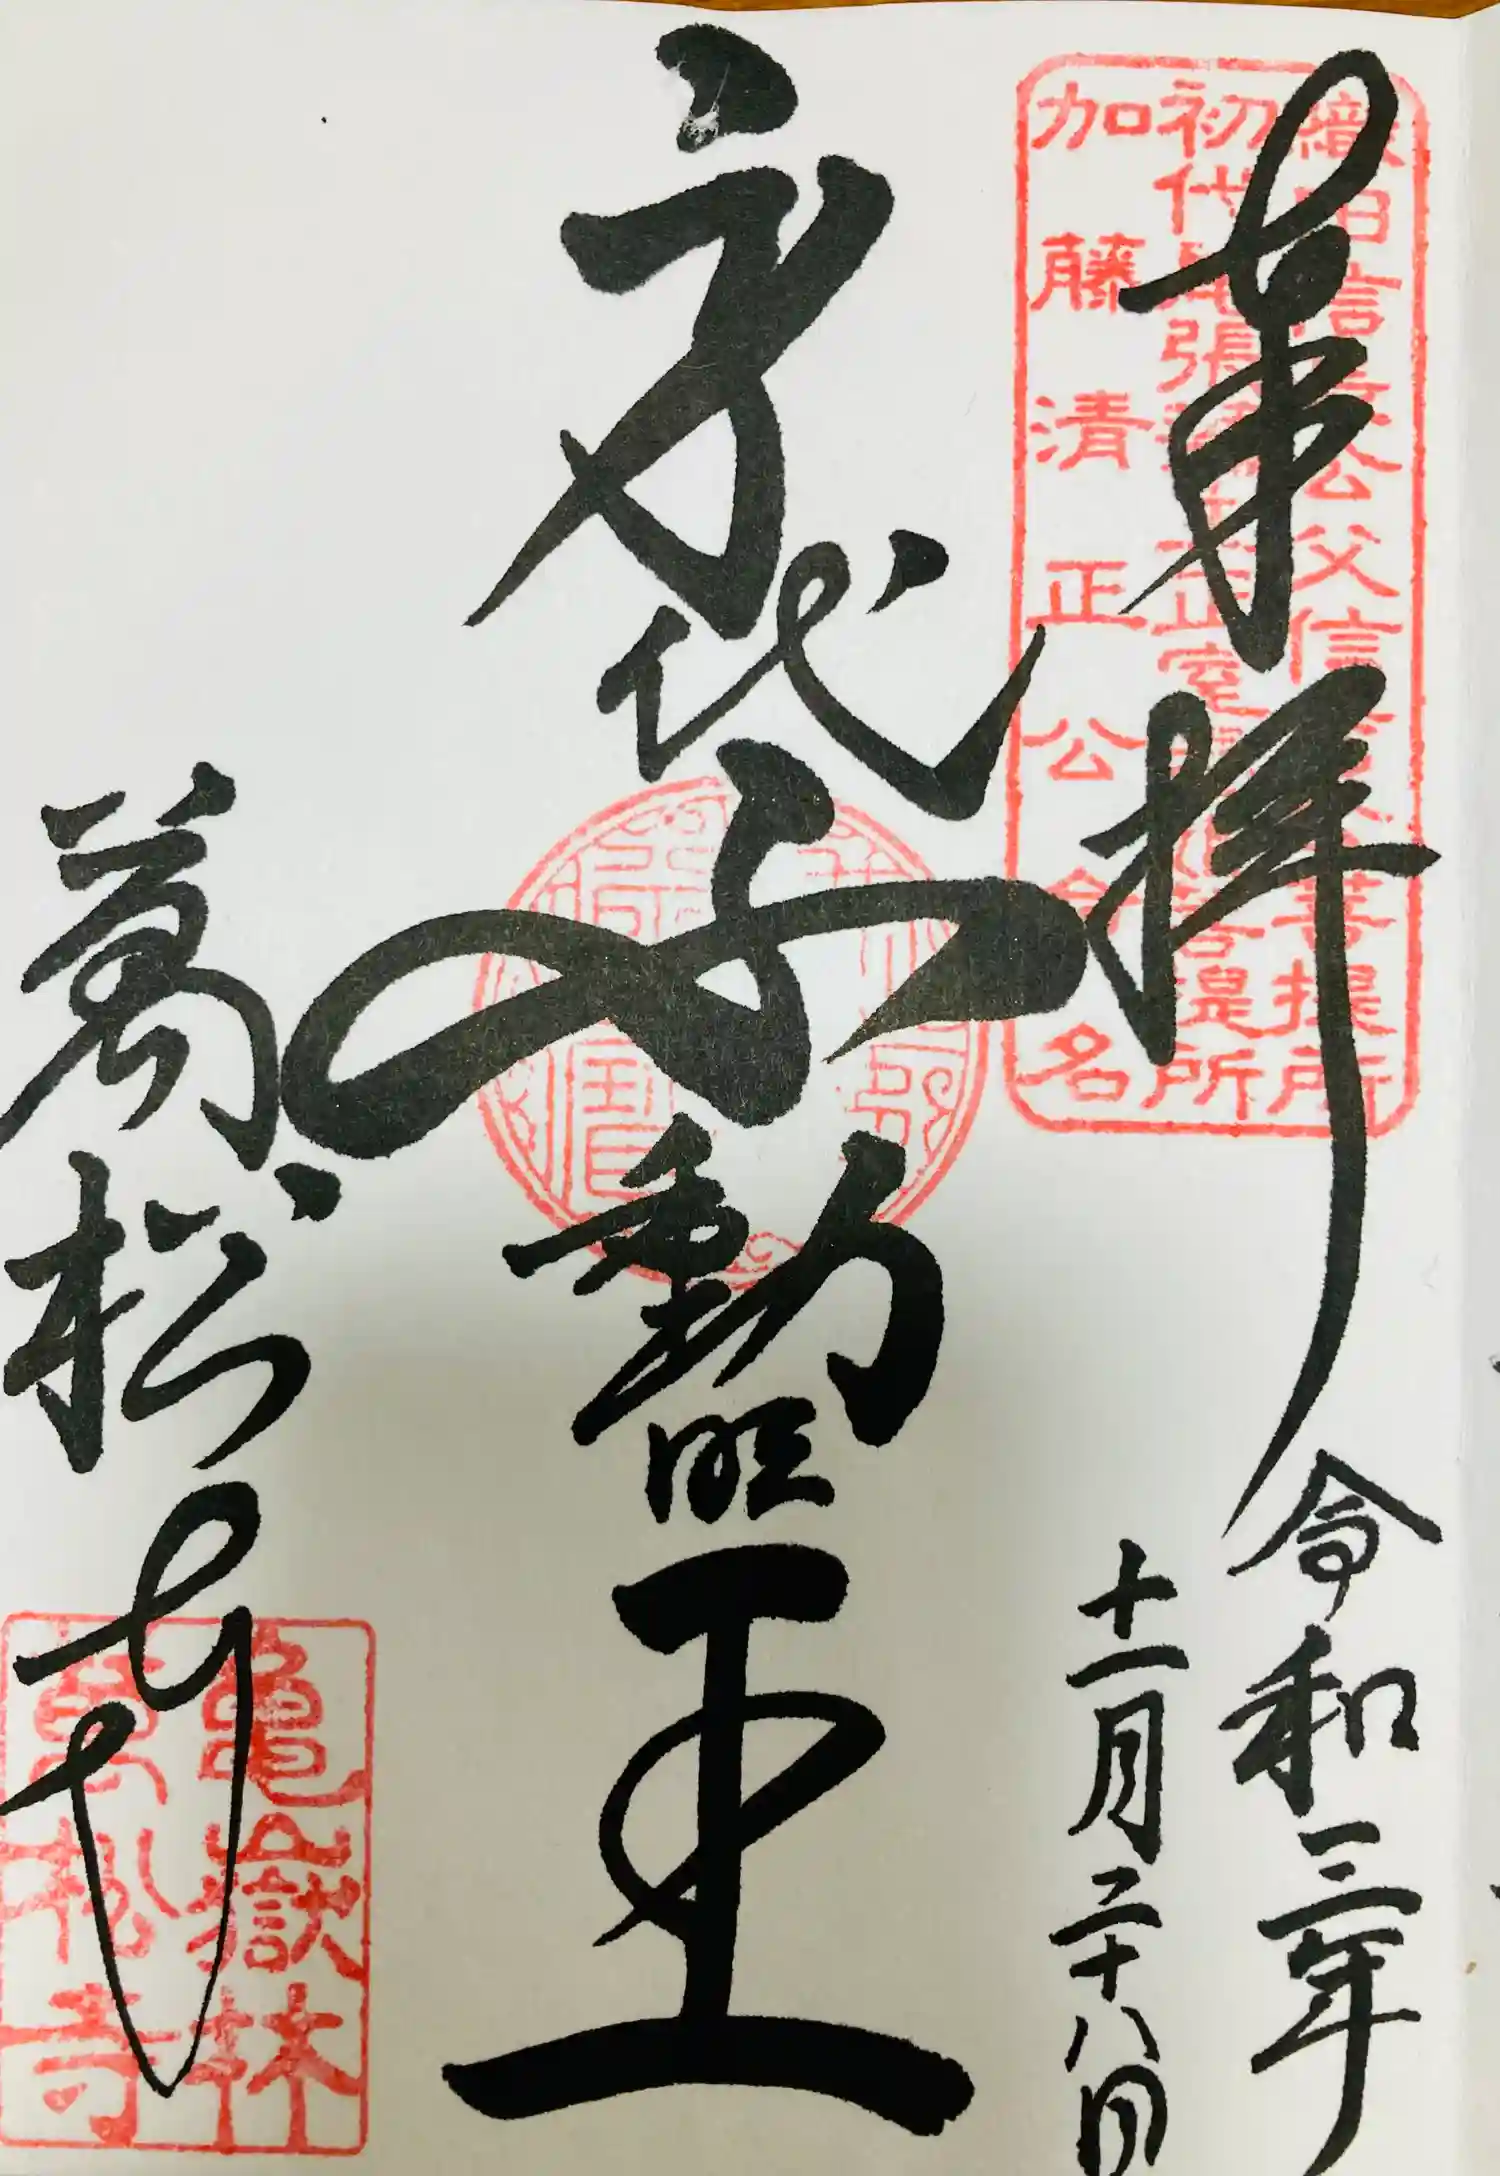 奉拝
令和三年
十一月二十八日
織田信長公父信秀公菩提所
初代尾張藩主正室春姫菩提所
加藤清正公命名
身代不動明王
萬松寺
亀嶽林
萬松寺